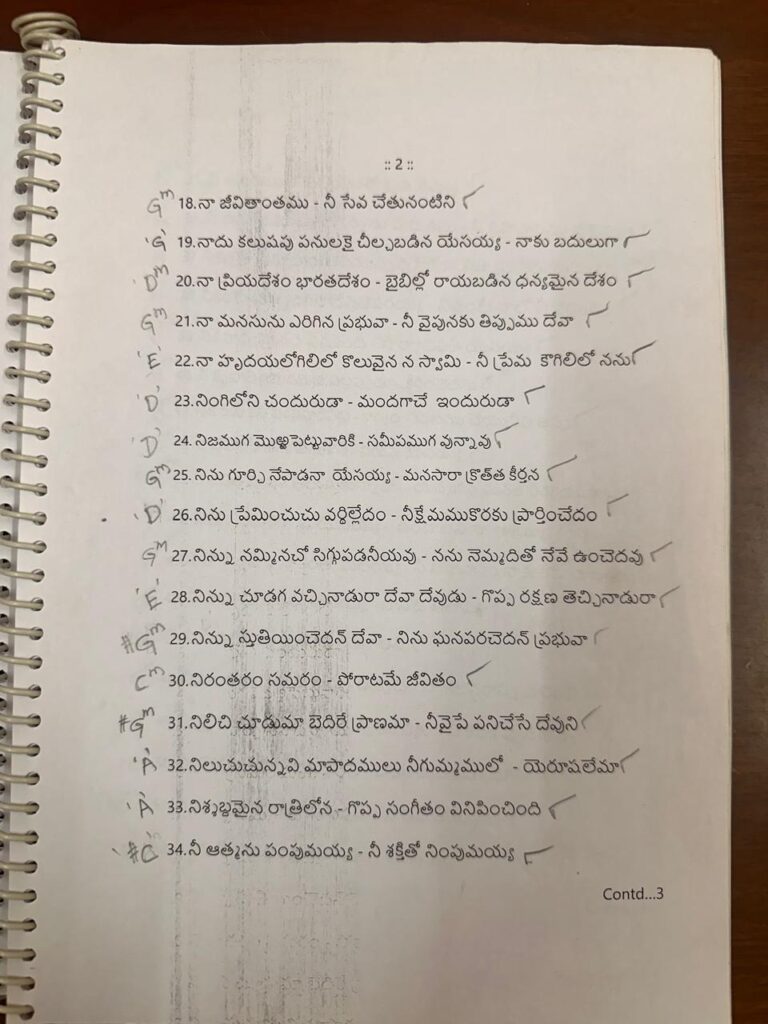 :: 2 ::
Gm 18.నా జీవితాంతము - నీ సేవ చేతునంటిని
'G' 19.నాదు కలుషపు పనులకై చీల్చబడిన యేసయ్య - నాకు బదులుగా
Dm 20.నా ప్రియదేశం భారతదేశం - బైబిల్లో రాయబడిన ధన్యమైన దేశం
Gm 21.నా మనసును ఎరిగిన ప్రభువా - నీ వైపునకు తిప్పుము దేవా
'E' 22.నా హృదయలోగిలిలో కొలువైన న స్వామి - నీ ప్రేమ కౌగిలిలో నను
'D' 23.నింగిలోని చందురుడా - మందగాచే ఇందురుడా
'D' 24.నిజముగ మొఱ్ఱపెట్టువారికి - సమీపముగ వున్నావు
Gm 25.నిను గూర్చి నేపాడనా యేసయ్య - మనసారా క్రొత్త కీర్తన
'D' 26.నిను ప్రేమించుచు వర్ధిల్లేదం - నీక్షేమముకొరకు ప్రార్తించేదం
Gm 27.నిన్ను నమ్మినచో సిగ్గుపడనీయవు - నను నెమ్మదితో నేవే ఉంచెదవు
'E' 28.నిన్ను చూడగ వచ్చినాడురా దేవా దేవుడు - గొప్ప రక్షణ తెచ్చినాడురా
#Gm 29.నిన్ను స్తుతియించెదన్ దేవా - నిను ఘనపరచెదన్ ప్రభువా
Cm 30.నిరంతరం సమరం - పోరాటమే జీవితం
#Gm 31.నిలిచి చూడుమా బెదిరే ప్రాణమా - నీవైపే పనిచేసే దేవుని
'A' 32.నిలుచుచున్నవి మాపాదములు నీగుమ్మములో - యెరూషలేమా
'A' 33.నిశ్శబ్దమైన రాత్రిలోన - గొప్ప సంగీతం వినిపించింది
#C 34.నీ ఆత్మను పంపుమయ్య - నీ శక్తితో నింపుమయ్య
Contd...3